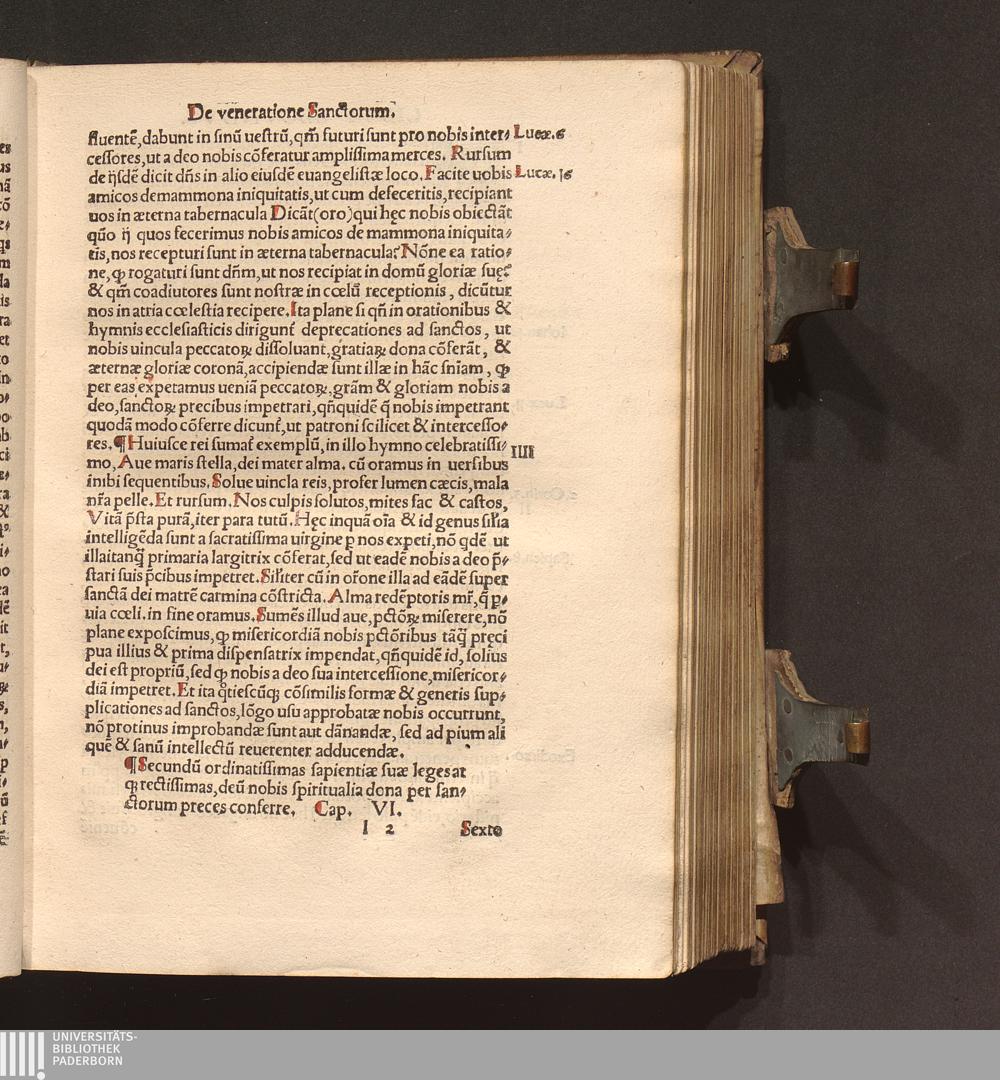 De vēneratione Sanctorum.
fluentē, dabunt in sinū uestrū, qm̄ futuri sunt pro nobis inter⸗ Lucæ. 6
cessores, ut a deo nobis cōferatur amplissima merces. Rursum
de ijsdē dicit dn̄s in alio eiusdē euangelistæ loco. Facite uobis Lucæ. 16
amicos de mammona iniquitatis, ut cum defeceritis, recipiant
uos in æterna tabernacula Dicāt (oro) qui hęc nobis obiectāt
quō ij quos fecerimus nobis amicos de mammona iniquita⸗
tis, nos recepturi sunt in æterna tabernacula? Nōne ea ratio⸗
ne, ꝙ rogaturi sunt dn̄m, ut nos recipiat in domū gloriæ suę?
& qm̄ coadiutores sunt nostræ in cœlū receptionis, dicūtur
nos in atria cœlestia recipere. Ita plane si qn̄ in orationibus &
hymnis ecclesiasticis dirigunt̄ deprecationes ad sanctos, ut
nobis uincula peccatoꝝ dissoluant, gratiaꝝ dona cōferāt, &
æternæ gloriæ coronā, accipiendæ sunt illæ in hāc sn̄iam, ꝙ
per eas expetamus ueniā peccatoꝝ, grām & gloriam nobis a
deo, sanctoꝝ precibus impetrari, qn̄quidē q̄ nobis impetrant
quodā modo cōferre dicunt̄, ut patroni scilicet & intercesso⸗
res. ¶ Huiusce rei sumat̄ exemplū, in illo hymno celebratissi⸗ IIII
mo, Aue maris stella, dei mater alma. cū oramus in uersibus
inibi sequentibus. Solue uincla reis, profer lumen cæcis, mala
nr̄a pelle. Et rursum. Nos culpis solutos, mites fac & castos,
Vitā p̄sta purā, iter para tutū. Hęc inquā oīa & id genus sil̄ia
intelligēda sunt a sacratissima uirgine ꝑ nos expeti, nō qdē ut
illa itanq̄ primaria largitrix cōferat, sed ut eadē nobis a deo p̄⸗
stari suis p̄cibus impetret. Sil̄iter cū in or̄one illa ad eādē super
sanctā dei matrē carmina cōstricta. Alma redēptoris mr̄, q̄ p⸗
uia cœli. in fine oramus. Sumēs illud aue, pctōꝝ miserere, nō
plane exposcimus, ꝙ misericordiā nobis pctōribus tāq̄ pręci
pua illius & prima dispensatrix impendat, qn̄quidē id, solius
dei est propriū, sed ꝙ nobis a deo sua intercessione, misericor⸗
diā impetret. Et ita qͦtiescūqꝫ cōsimilis formæ & generis sup⸗
plicationes ad sanctos, lōgo usu approbatæ nobis occurrunt,
nō protinus improbandæ sunt aut dānandæ, sed ad pium ali
quē & sanū intellectū reuerenter adducendæ.
¶ Secundū ordinatissimas sapientiæ suæ leges at
qꝫ rectissimas, deū nobis spiritualia dona per san⸗
ctorum preces conferre. Cap. VI.
l 2 Sexto
UNIVERSITÄTS-
BIBLIOTHEK
PADERBORN